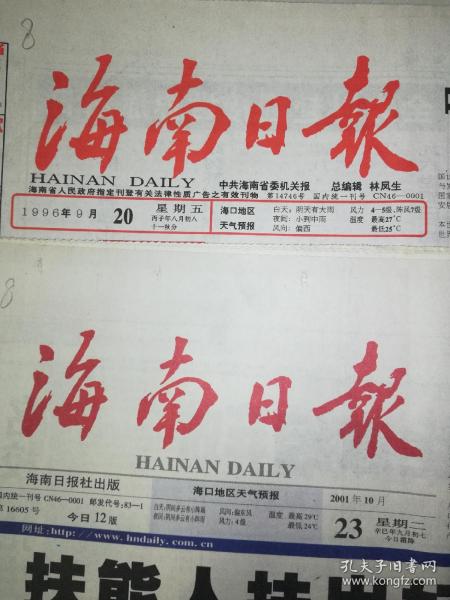 8
海南日報
HAINAN DAILY
中共海南省委机关报 总编辑 林凤生
海南省人民政府指定刊登有关法律性质广告之有效刊物 第14746号 国内统一刊号 CN46—0001
1996年9月 20 星期五
丙子年八月初八
十一秋分
海口地区
天气预报
白天：阴天有大雨 风力 4—5级，阵风7级
夜间：小到中雨 温度 最高27℃
风向：偏西 最低25℃
8
海南日報
HAINAN DAILY
海南日报社出版
国内统一刊号 CN46—0001 邮发代号：83—1
第16605号 今日12版
海口地区天气预报
白天：阴间多云有小阵雨 风向：偏东风 温度 最高29℃
夜间：阴间多云有小阵雨 风力：4级 最低24℃
2001年10月
23 星期二
辛巳年九月初七
今日霜降
网址：http://www.hndaily.com.cn
孔夫子旧书网